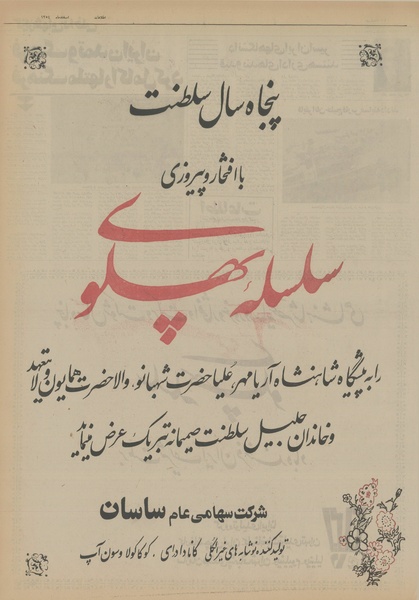 پنجاه سال سلطنت
با افتخار و پیروزی
سلسلهٔ پهلوی
را به پیشگاه شاهنشاه آریامهر، علیاحضرت شهبانو، والاحضرت همایون ولایتعهد
و خاندان جلیل سلطنت صمیمانه تبریک عرض مینماید
شرکت سهامی عام ساسان
تولید کننده نوشابه های غیر الکلی کانادادرای، کوکاکولا و سون آپ